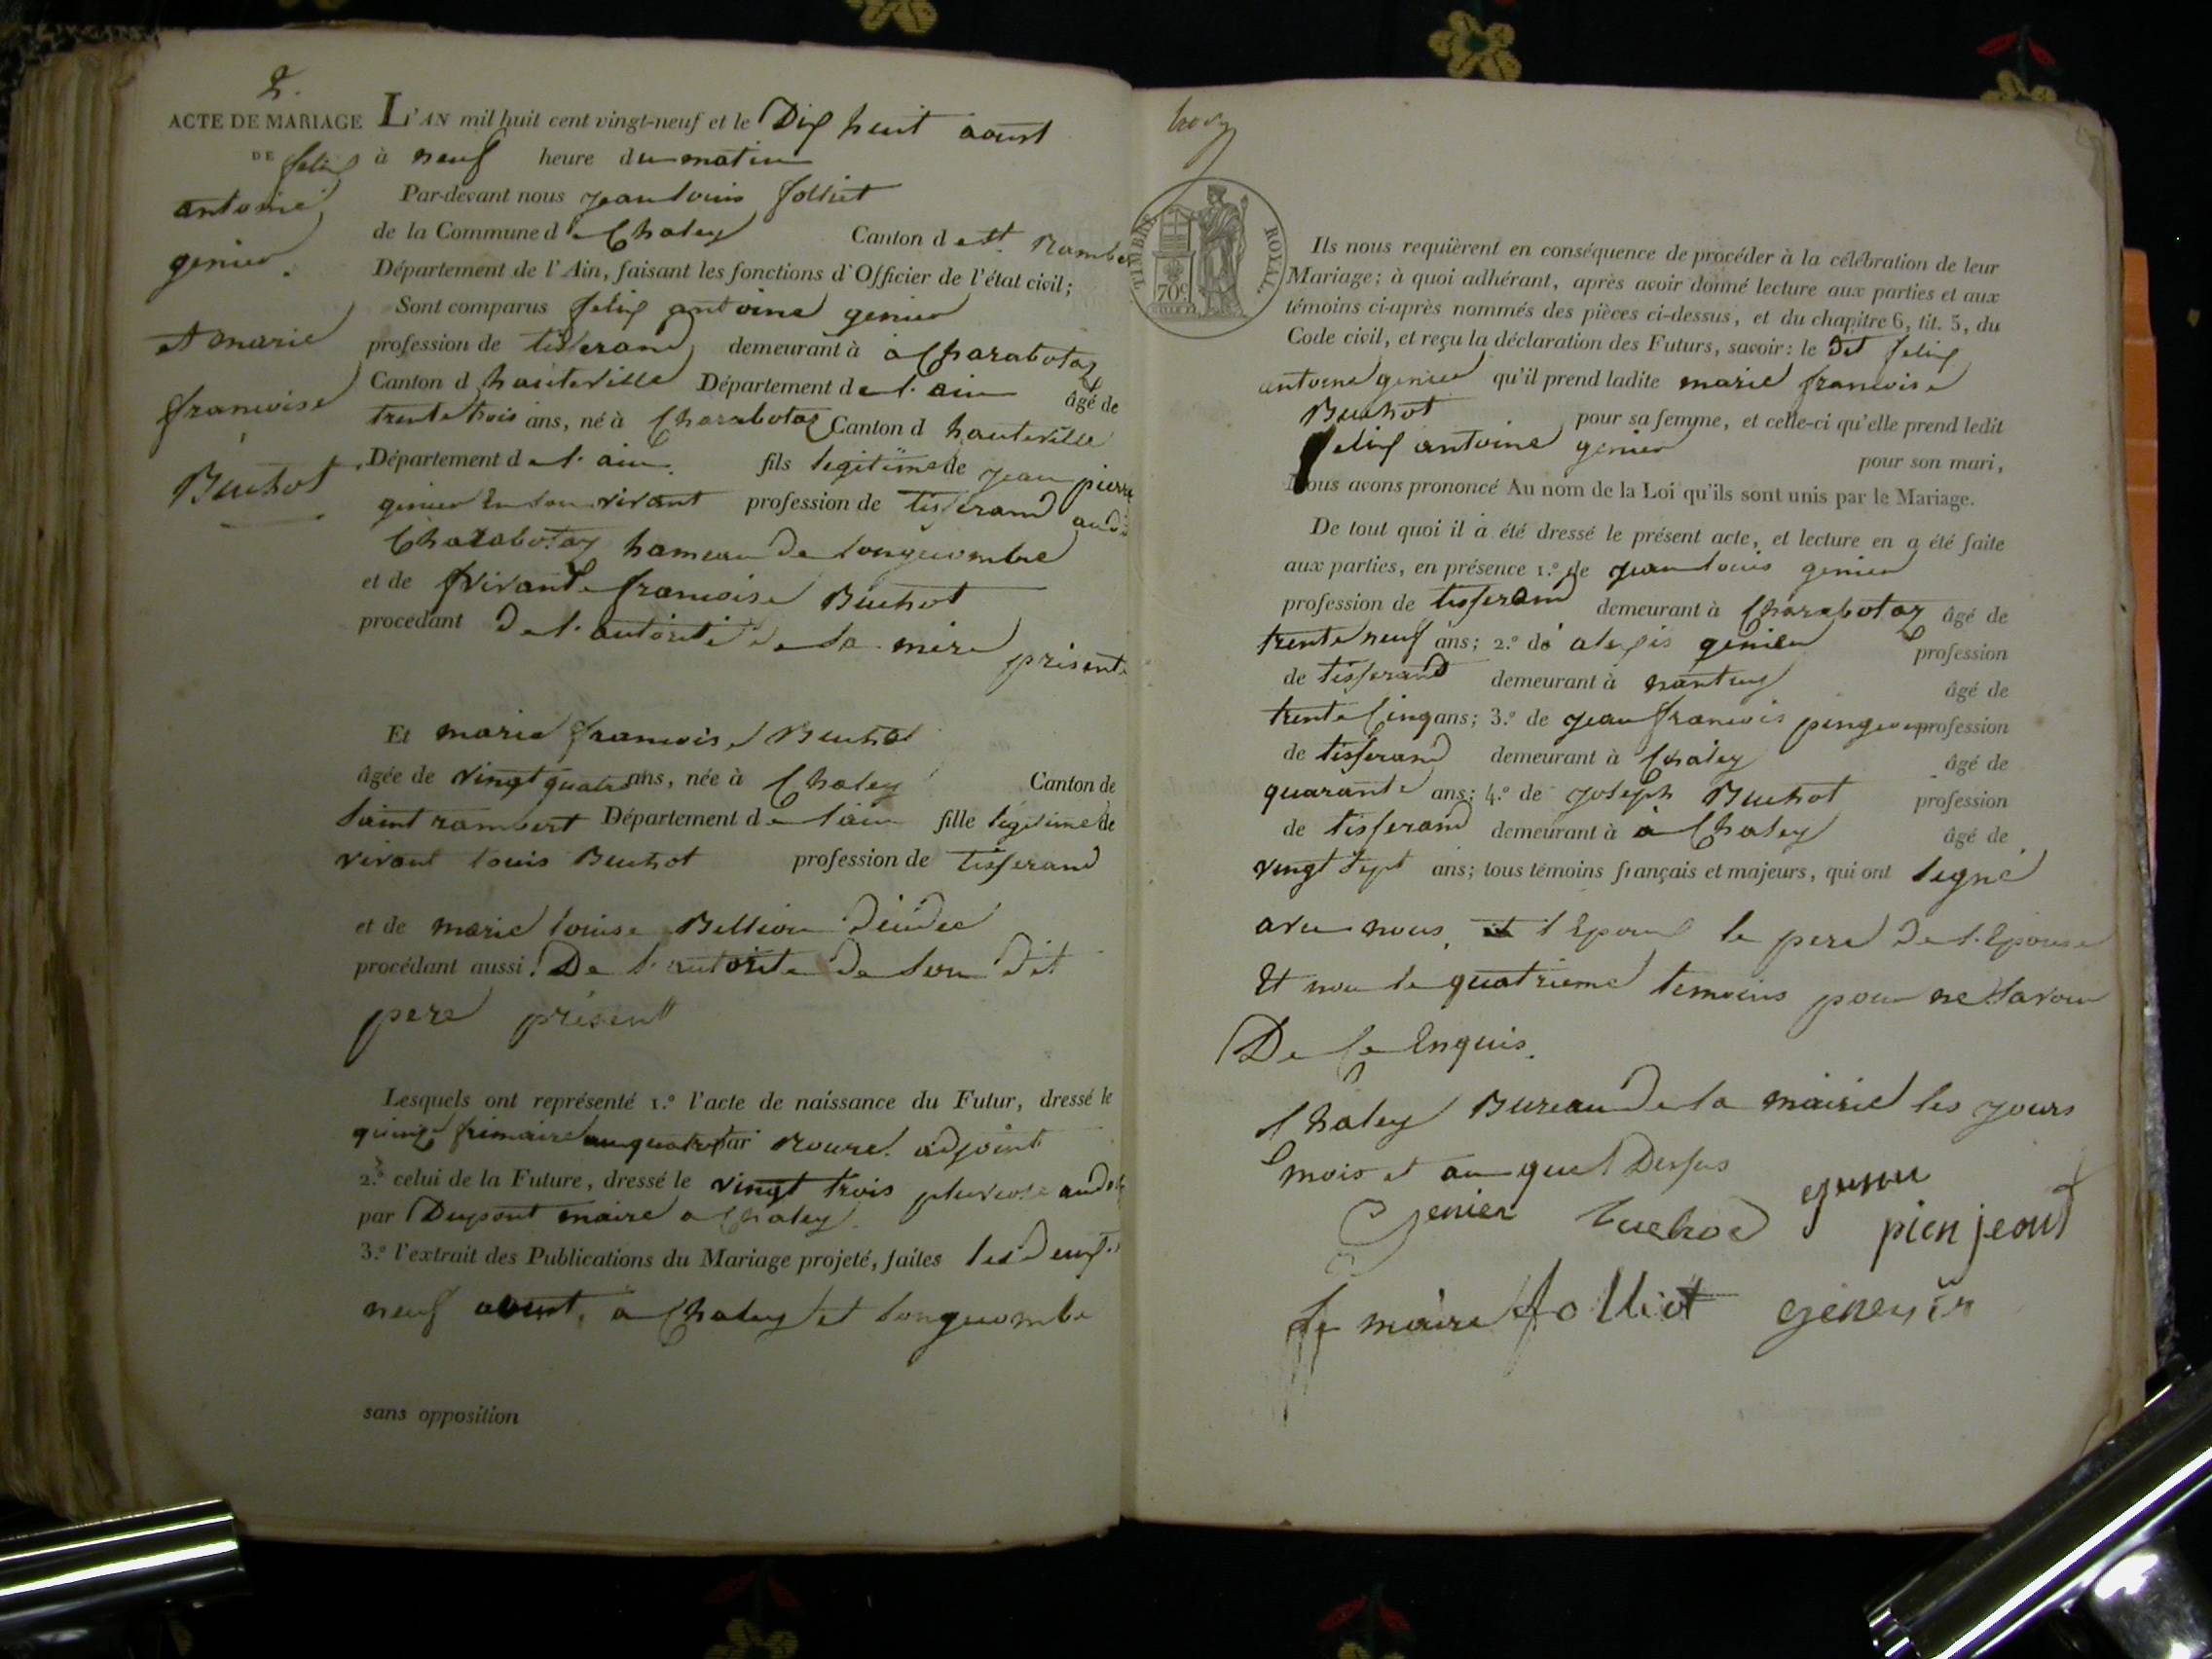 2.
ACTE DE MARIAGE
DE felix
antoine
genier.
et marie
francoise
Buchot
L'AN mil huit cent vingt-neuf et le Dix huit aoust
à neuf heure du matin
Par-devant nous jean louis Jolliet
de la Commune de Chaley Canton de st Rambe
Département de l'Ain, faisant les fonctions d'Officier de l'état civil;
Sont comparus felix antoine genier
profession de tisserand demeurant à a Charabotaz
Canton d hauteville Département de l. ain âgé de
trente trois ans, né à Charabotaz Canton d hauteville
Département de l. ain. fils legitime de jean pierre
genier En son vivant profession de tisserand
Charabotaz hameau de longecombe
et de vivante francoise Buchot
procédant De l. autorité de sa mère présente
Et marie francoise Buchot
âgée de vingt quatre ans, née à Chaley Canton de
saint rambert Département de l'ain fille legitime de
vivant louis Buchot profession de tisserand
et de marie louise Bellion
procédant aussi De l. autorite de son dit
pere présent
Lesquels ont représenté 1.º l'acte de naissance du Futur, dressé le
quinze frimaire an quatre par Roure adjoint
2.º celui de la Future, dressé le vingt trois pluviose
par Dupont maire a Chaley
3.º l'extrait des Publications du Mariage projeté, faites les deux
neuf aoust, a Chaley et longecombe
sans opposition
TIMBRE ROYAL.
70c
Ils nous requièrent en conséquence de procéder à la célébration de leur
Mariage; à quoi adhérant, après avoir donné lecture aux parties et aux
témoins ci-après nommés des pièces ci-dessus, et du chapitre 6, tit. 5, du
Code civil, et reçu la déclaration des Futurs, savoir: le dit felix
antoine genier qu'il prend ladite marie francoise
Buchot pour sa femme, et celle-ci qu'elle prend ledit
felix antoine genier pour son mari,
Nous avons prononcé Au nom de la Loi qu'ils sont unis par le Mariage.
De tout quoi il a été dressé le présent acte, et lecture en a été faite
aux parties, en présence 1.º de jean louis genier
profession de tisserand demeurant à Charabotaz âgé de
trente neuf ans; 2.º de alexis genier profession
de tisserand demeurant à nantuy âgé de
trente cinq ans; 3.º de jean francois pingeon profession
de tisserand demeurant à Chaley âgé de
quarante ans; 4.º de joseph Buchot profession
de tisserand demeurant à a Chaley âgé de
vingt sept ans; tous témoins français et majeurs, qui ont signé
avec nous, l Epoux le pere De l. Epouse
Et non le quatrieme temoins pour ne savoir
De ce Enquis.
Chaley Bureau de la mairie les jours
mois et an que Dessus
Genier genier
pienjeont
Le maire Jolliet